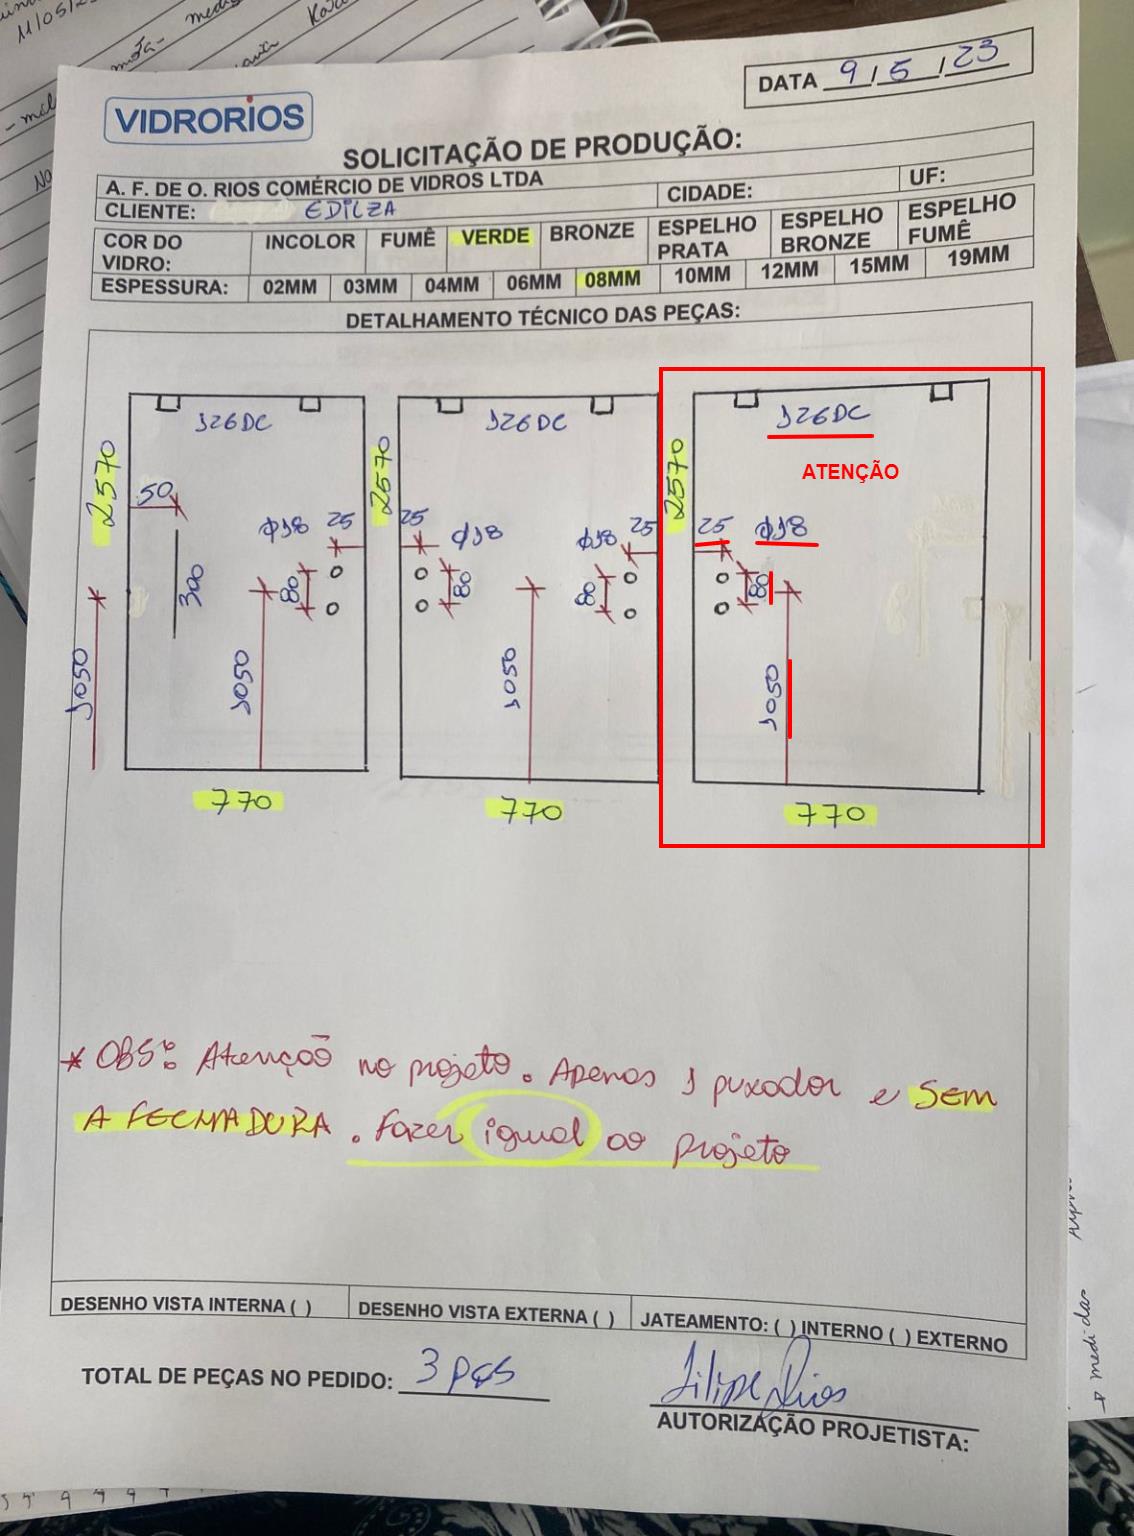 11/05/2
DATA 9 / 5 / 23
VIDRORIOS
SOLICITAÇÃO DE PRODUÇÃO:
A. F. DE O. RIOS COMÉRCIO DE VIDROS LTDA
CIDADE:
UF:
CLIENTE: EDILZA
COR DO VIDRO: INCOLOR FUMÊ VERDE BRONZE ESPELHO PRATA ESPELHO BRONZE ESPELHO FUMÊ
ESPESSURA: 02MM 03MM 04MM 06MM 08MM 10MM 12MM 15MM 19MM
DETALHAMENTO TÉCNICO DAS PEÇAS:
126DC 126DC 126DC
ATENÇÃO
2570 2570 2570
50
Ø18 25 25 Ø18 Ø18 25 25 Ø18
300 80 80 80 80
1050 1050 1050 1050
770 770 770
* OBS: Atenção no projeto. Apenas 1 puxador e SEM
A FECHADURA. Fazer igual ao projeto
DESENHO VISTA INTERNA ( ) DESENHO VISTA EXTERNA ( ) JATEAMENTO: ( ) INTERNO ( ) EXTERNO
TOTAL DE PEÇAS NO PEDIDO: 3 pçs
Filipe Rios
AUTORIZAÇÃO PROJETISTA:
medidas